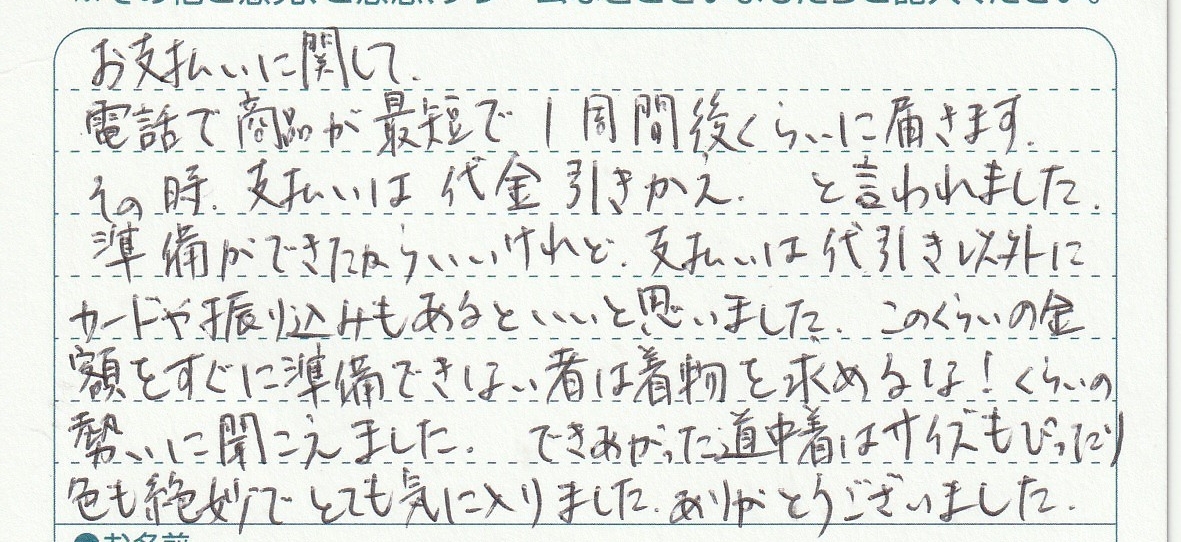 お支払いに関して.
電話で商品が最短で1周間後くらいに届きます.
その時.支払いは代金引きかえ. と言われました.
準備ができたからいいけれど.支払いは代引き以外に
カードや振り込みもあるといいと思いました. このくらいの金
額をすぐに準備できない者は着物を求めるな!くらいの
勢いに聞こえました. できあがった道中着はサイズもぴったり
色も絶妙でとても気に入りました.ありがとうございました.
●お名前